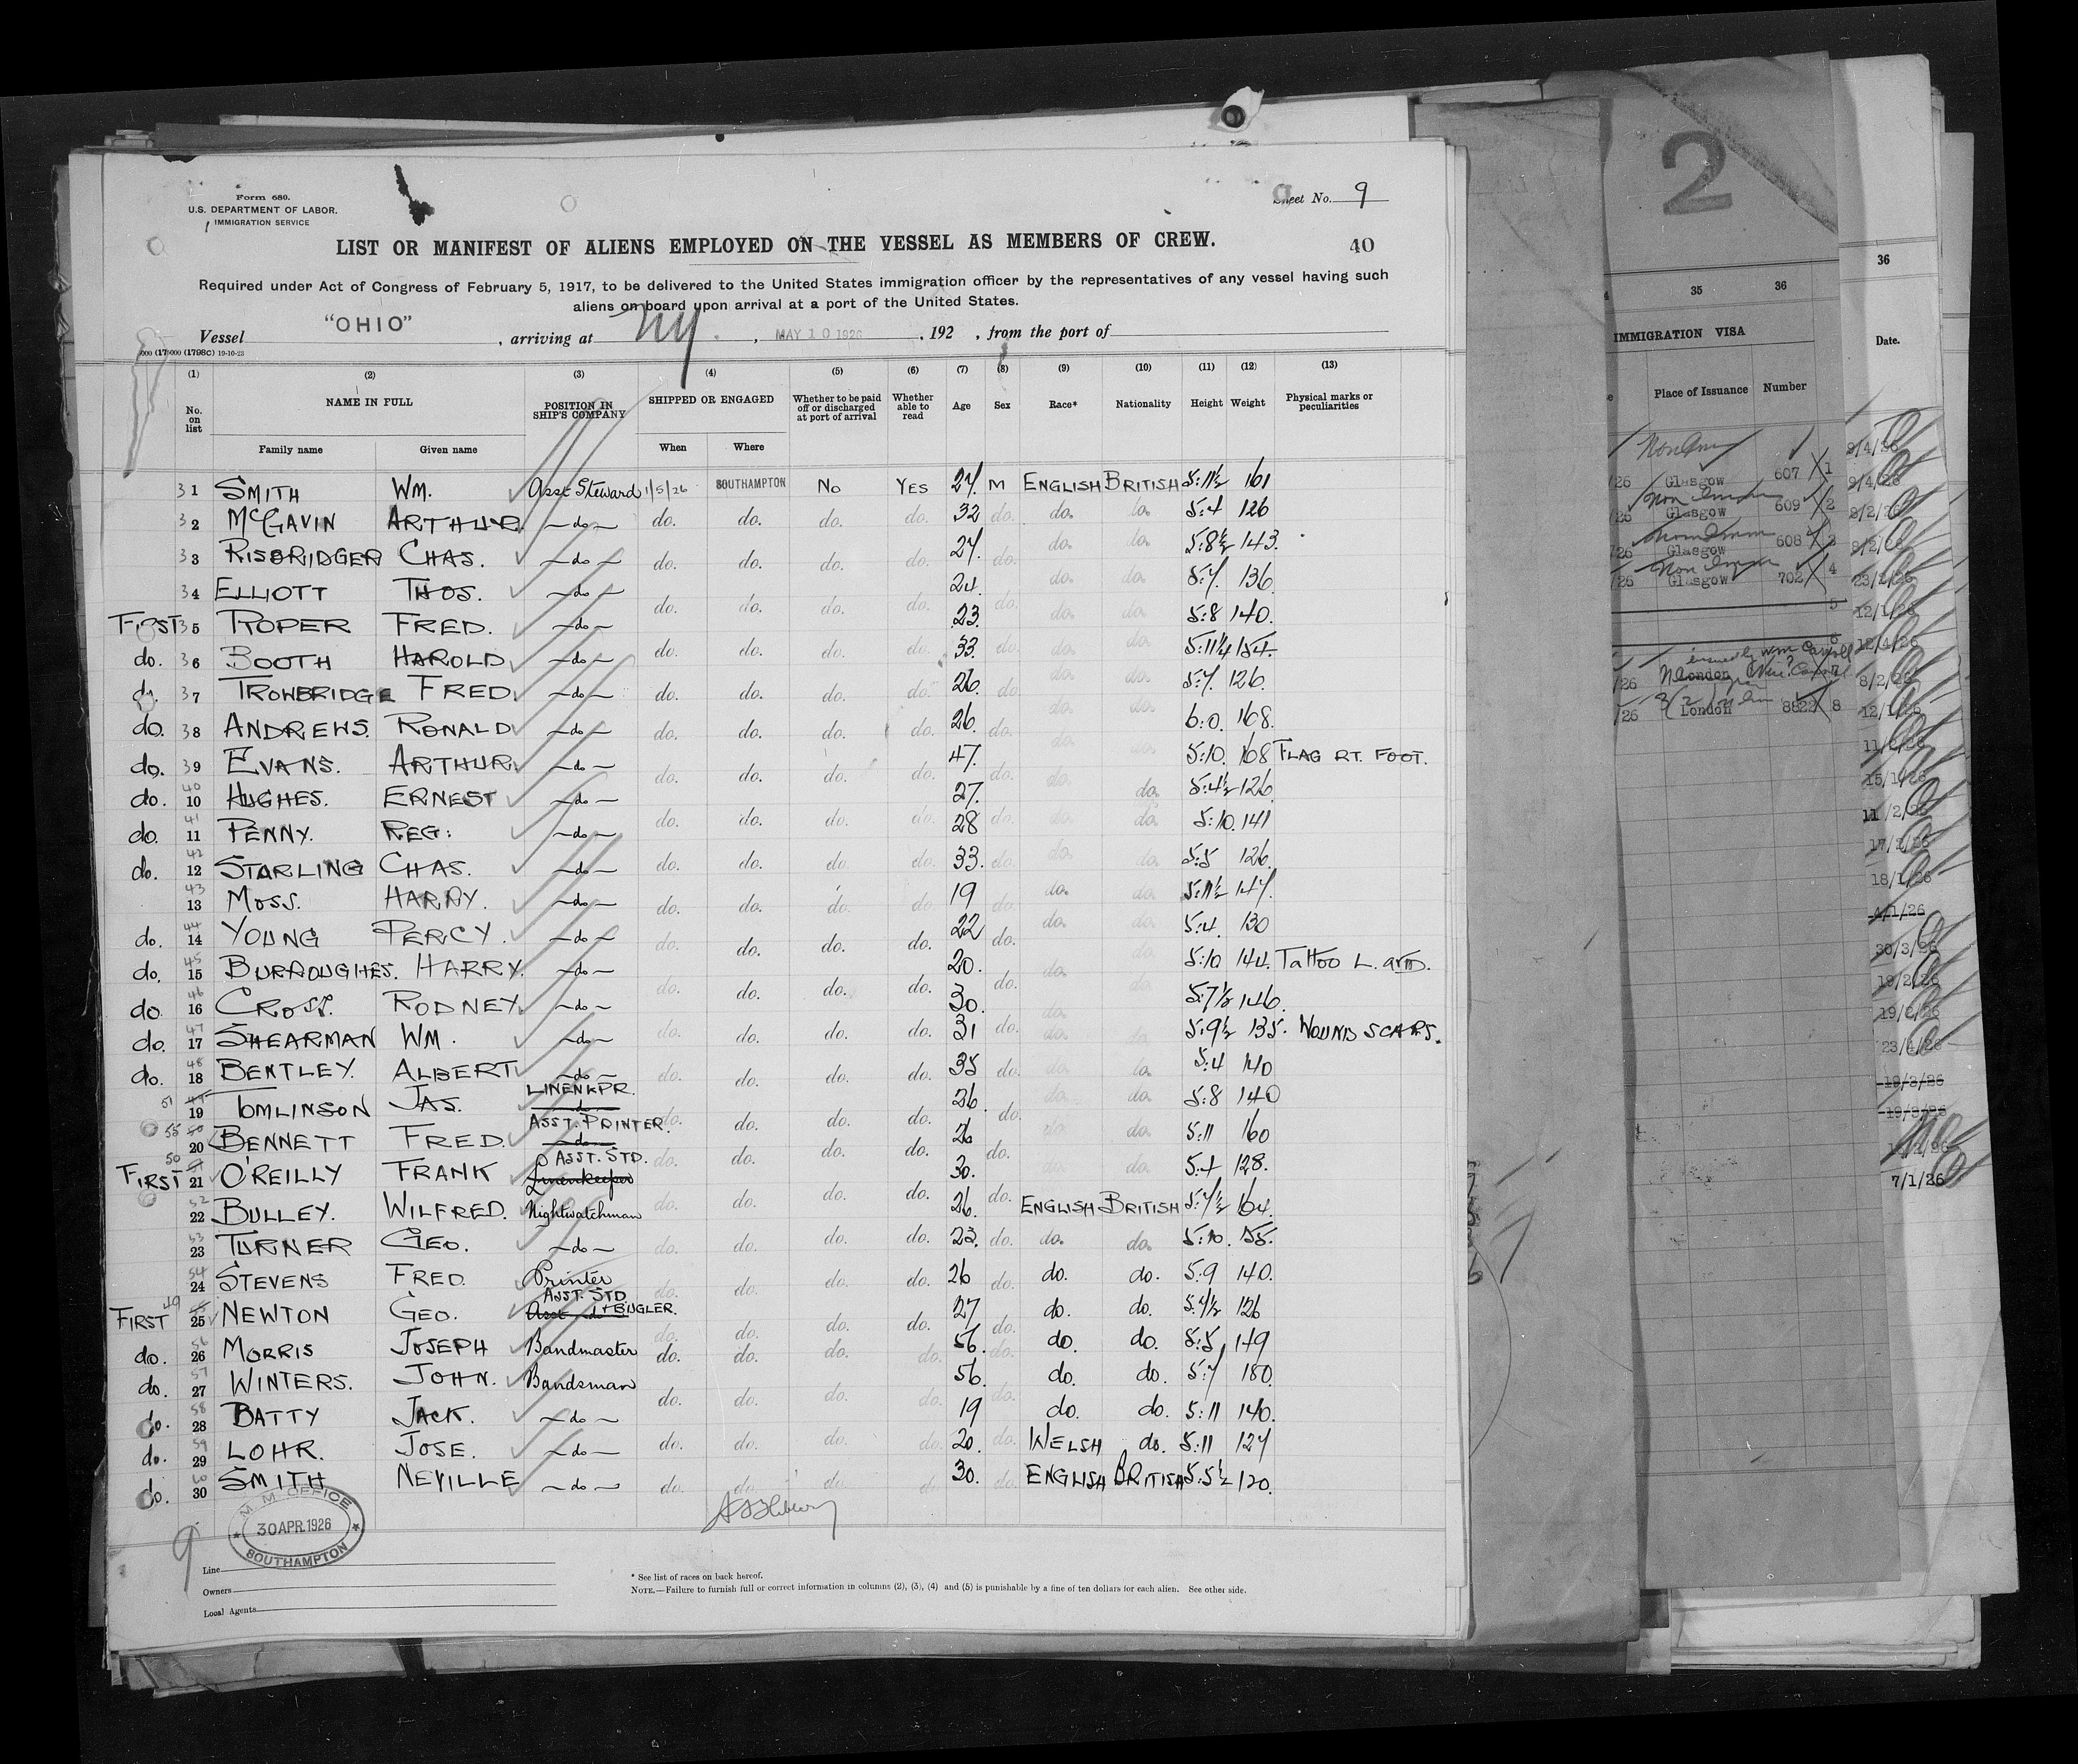 Form 680.
U.S. DEPARTMENT OF LABOR.
IMMIGRATION SERVICE
Sheet No. 9
LIST OR MANIFEST OF ALIENS EMPLOYED ON THE VESSEL AS MEMBERS OF CREW.
40
Required under Act of Congress of February 5, 1917, to be delivered to the United States immigration officer by the representatives of any vessel having such
aliens on board upon arrival at a port of the United States.
Vessel "OHIO", arriving at NY., MAY 10 1926, 192 , from the port of
(1) (2) (3) (4) (5) (6) (7) (8) (9) (10) (11) (12) (13)
No. on list NAME IN FULL POSITION IN SHIP'S COMPANY SHIPPED OR ENGAGED Whether to be paid off or discharged at port of arrival Whether able to read Age Sex Race* Nationality Height Weight Physical marks or peculiarities
Family name Given name When Where
31 SMITH WM. Asst Steward 1/5/26 SOUTHAMPTON NO YES 27. M ENGLISH BRITISH 5:11½ 161
32 McGAVIN ARTHUR. —do— do. do. do. do. 32 do. do. do. 5:4 126
33 RISBRIDGER CHAS. —do— do. do. do. do. 27. do. do. do. 5:8½ 143.
34 ELLIOTT THOS. —do— do. do. do. do. 24. do. do. do. 5:7. 136
FIRST 35 ROPER FRED. —do— do. do. do. do. 23. do. do. do. 5:8 140.
do. 36 BOOTH HAROLD —do— do. do. do. do. 33. do. do. do. 5:11¼ 154.
do. 37 TROWBRIDGE FRED. —do— do. do. do. do. 26. do. do. do. 5:7. 126.
do. 38 ANDREWS. RONALD —do— do. do. do. do. 26. do. do. do. 6:0. 168.
do. 39 EVANS. ARTHUR. —do— do. do. do. do. 47. do. do. do. 5:10. 168 FLAG RT. FOOT.
do. 40 10 HUGHES. ERNEST —do— do. do. do. do. 27. do. do. 5:4½ 126
do. 41 11 PENNY. REG: —do— do. do. do. do. 28 do. do. do. 5:10. 141
do. 42 12 STARLING CHAS. —do— do. do. do. do. 33. do. do. do. 5:5 126.
43 13 MOSS. HARRY. —do— do. do. do. do. 19 do. do. do. 5:11½ 147.
do. 44 14 YOUNG PERCY. —do— do. do. do. do. 22 do. do. do. 5:4. 130
do. 45 15 BURROUGHES. HARRY. —do— do. do. do. do. 20. do. do. 5:10 144. Tattoo L. arm.
do. 46 16 CROSS. RODNEY. —do— do. do. do. do. 30. do. do. 5:7½ 146.
do. 47 17 SHEARMAN WM. —do— do. do. do. do. 31 do. do. do. 5:9½ 135. WOUND SCARS.
do. 48 18 BENTLEY. ALBERT. —do— do. do. do. do. 35 do. do. do. 5:4 140
51 49 19 TOMLINSON JAS. LINENKPR. do do. do. do. do. 26. do. do. do. 5:8 140
55 50 20 BENNETT FRED. ASST. PRINTER. do do. do. do. do. 26 do. do. do. 5:11 160
FIRST 50 51 21 O'REILLY FRANK ASST. STD. Linenkeeper do. do. do. do. 30. do. do. 5:4 128.
52 22 BULLEY. WILFRED. Nightwatchman do. do. do. do. 26. do. ENGLISH BRITISH 5:7½ 164.
53 23 TURNER GEO. —do— do. do. do. do. 23. do. do. do. 5:10. 155.
54 24 STEVENS FRED. Printer do. do. do. do. 26 do. do. do. 5:9 140.
FIRST 49 55 25 NEWTON GEO. ASST. STD + BUGLER. do. do. do. do. 27 do. do. do. 5:4½ 126
do. 56 26 MORRIS JOSEPH Bandmaster do. do. do. do. 56. do. do. do. 5:5 149
do. 57 27 WINTERS. JOHN. Bandsman do. do. do. do. 56. do. do. do. 5:7 180.
do. 58 28 BATTY JACK. —do— do. do. do. do. 19 do. do. do. 5:11 140.
do. 59 29 LOHR. JOSE. —do— do. do. do. do. 20. do. WELSH do. 5:11 127
do. 60 30 SMITH NEVILLE —do— do. do. do. do. 30. do. ENGLISH BRITISH 5:5½ 120.
M. M. OFFICE
30 APR. 1926
SOUTHAMPTON
9
Line
Owners
Local Agents
* See list of races on back hereof.
NOTE.—Failure to furnish full or correct information in columns (2), (3), (4) and (5) is punishable by a fine of ten dollars for each alien. See other side.
2
35 36
IMMIGRATION VISA
Place of Issuance Number
/26 Glasgow 607 1
/26 Glasgow 609 2
/26 Glasgow 608 3
/26 Glasgow 702 4
5
6
/26 London 7
/26 London 8822 8
36
Date.
9/4/26
9/4/26
8/2/26
8/2/26
23/2/26
12/1/26
12/4/26
8/2/26
12/1/26
15/1/26
11/2/26
17/2/26
18/1/26
4/1/26
30/3/26
19/2/26
19/2/26
23/4/26
19/3/26
19/3/26
7/1/26